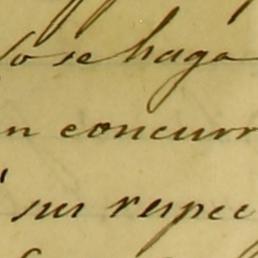 lo se haga
n concurr
sus respec